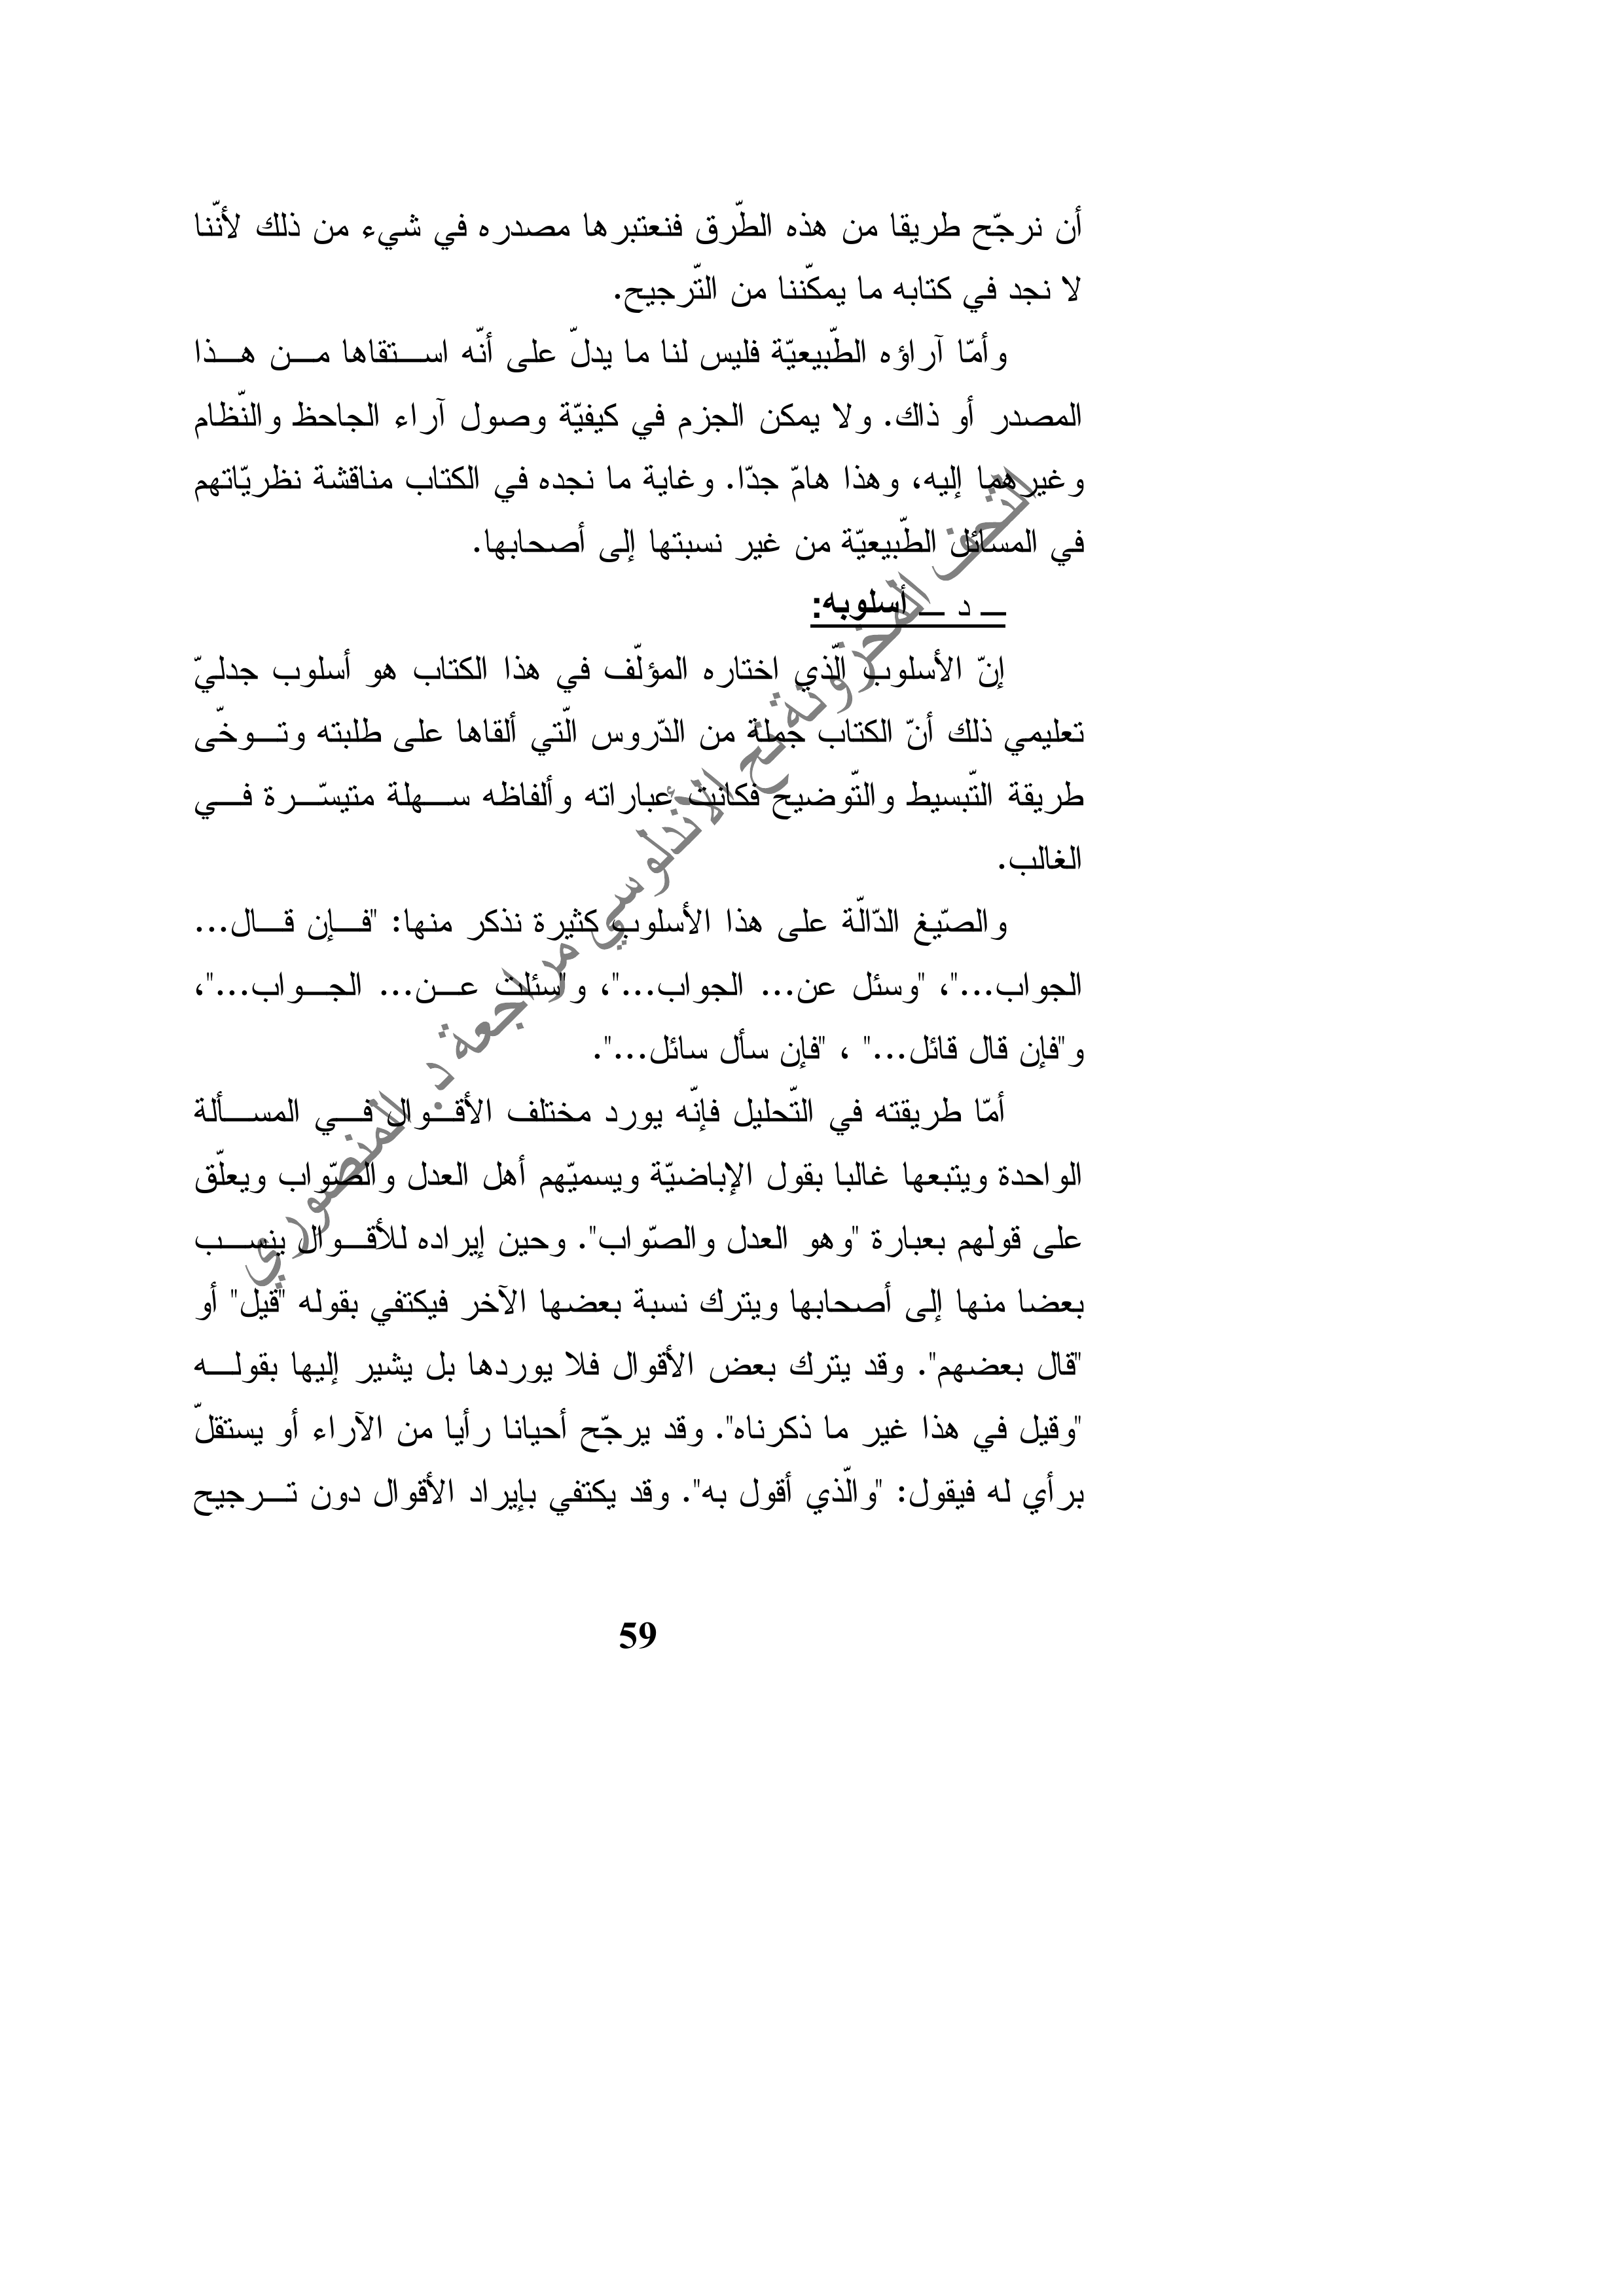 أن نرجّح طريقا من هذه الطّرق فنعتبرها مصدره في شيء من ذلك لأنّنا
لا نجد في كتابه ما يمكّننا من التّرجيح.
وأمّا آراؤه الطّبيعيّة فليس لنا ما يدلّ على أنّه استقاها من هذا
المصدر أو ذاك. ولا يمكن الجزم في كيفيّة وصول آراء الجاحظ والنّظام
وغيرهما إليه، وهذا هامّ جدّا. وغاية ما نجده في الكتاب مناقشة نظريّاتهم
في المسائل الطّبيعيّة من غير نسبتها إلى أصحابها.
ــ د ــ أسلوبه:
إنّ الأسلوب الّذي اختاره المؤلّف في هذا الكتاب هو أسلوب جدليّ
تعليمي ذلك أنّ الكتاب جملة من الدّروس الّتي ألقاها على طلبته وتوخّى
طريقة التّبسيط والتّوضيح فكانت عباراته وألفاظه سهلة متيسّرة في
الغالب.
والصّيغ الدّالّة على هذا الأسلوب كثيرة نذكر منها: "فإن قال...
الجواب..."، "وسئل عن... الجواب..."، و"سئلت عن... الجواب..."،
و"فإن قال قائل..." ، "فإن سأل سائل...".
أمّا طريقته في التّحليل فإنّه يورد مختلف الأقوال في المسألة
الواحدة ويتبعها غالبا بقول الإباضيّة ويسميّهم أهل العدل والصّواب ويعلّق
على قولهم بعبارة "وهو العدل والصّواب". وحين إيراده للأقوال ينسب
بعضا منها إلى أصحابها ويترك نسبة بعضها الآخر فيكتفي بقوله "قيل" أو
"قال بعضهم". وقد يترك بعض الأقوال فلا يوردها بل يشير إليها بقوله
"وقيل في هذا غير ما ذكرناه". وقد يرجّح أحيانا رأيا من الآراء أو يستقلّ
برأي له فيقول: "والّذي أقول به". وقد يكتفي بإيراد الأقوال دون ترجيح
59
التحف المخزونة تح الأندلوسي مراجعة د. المنصوري